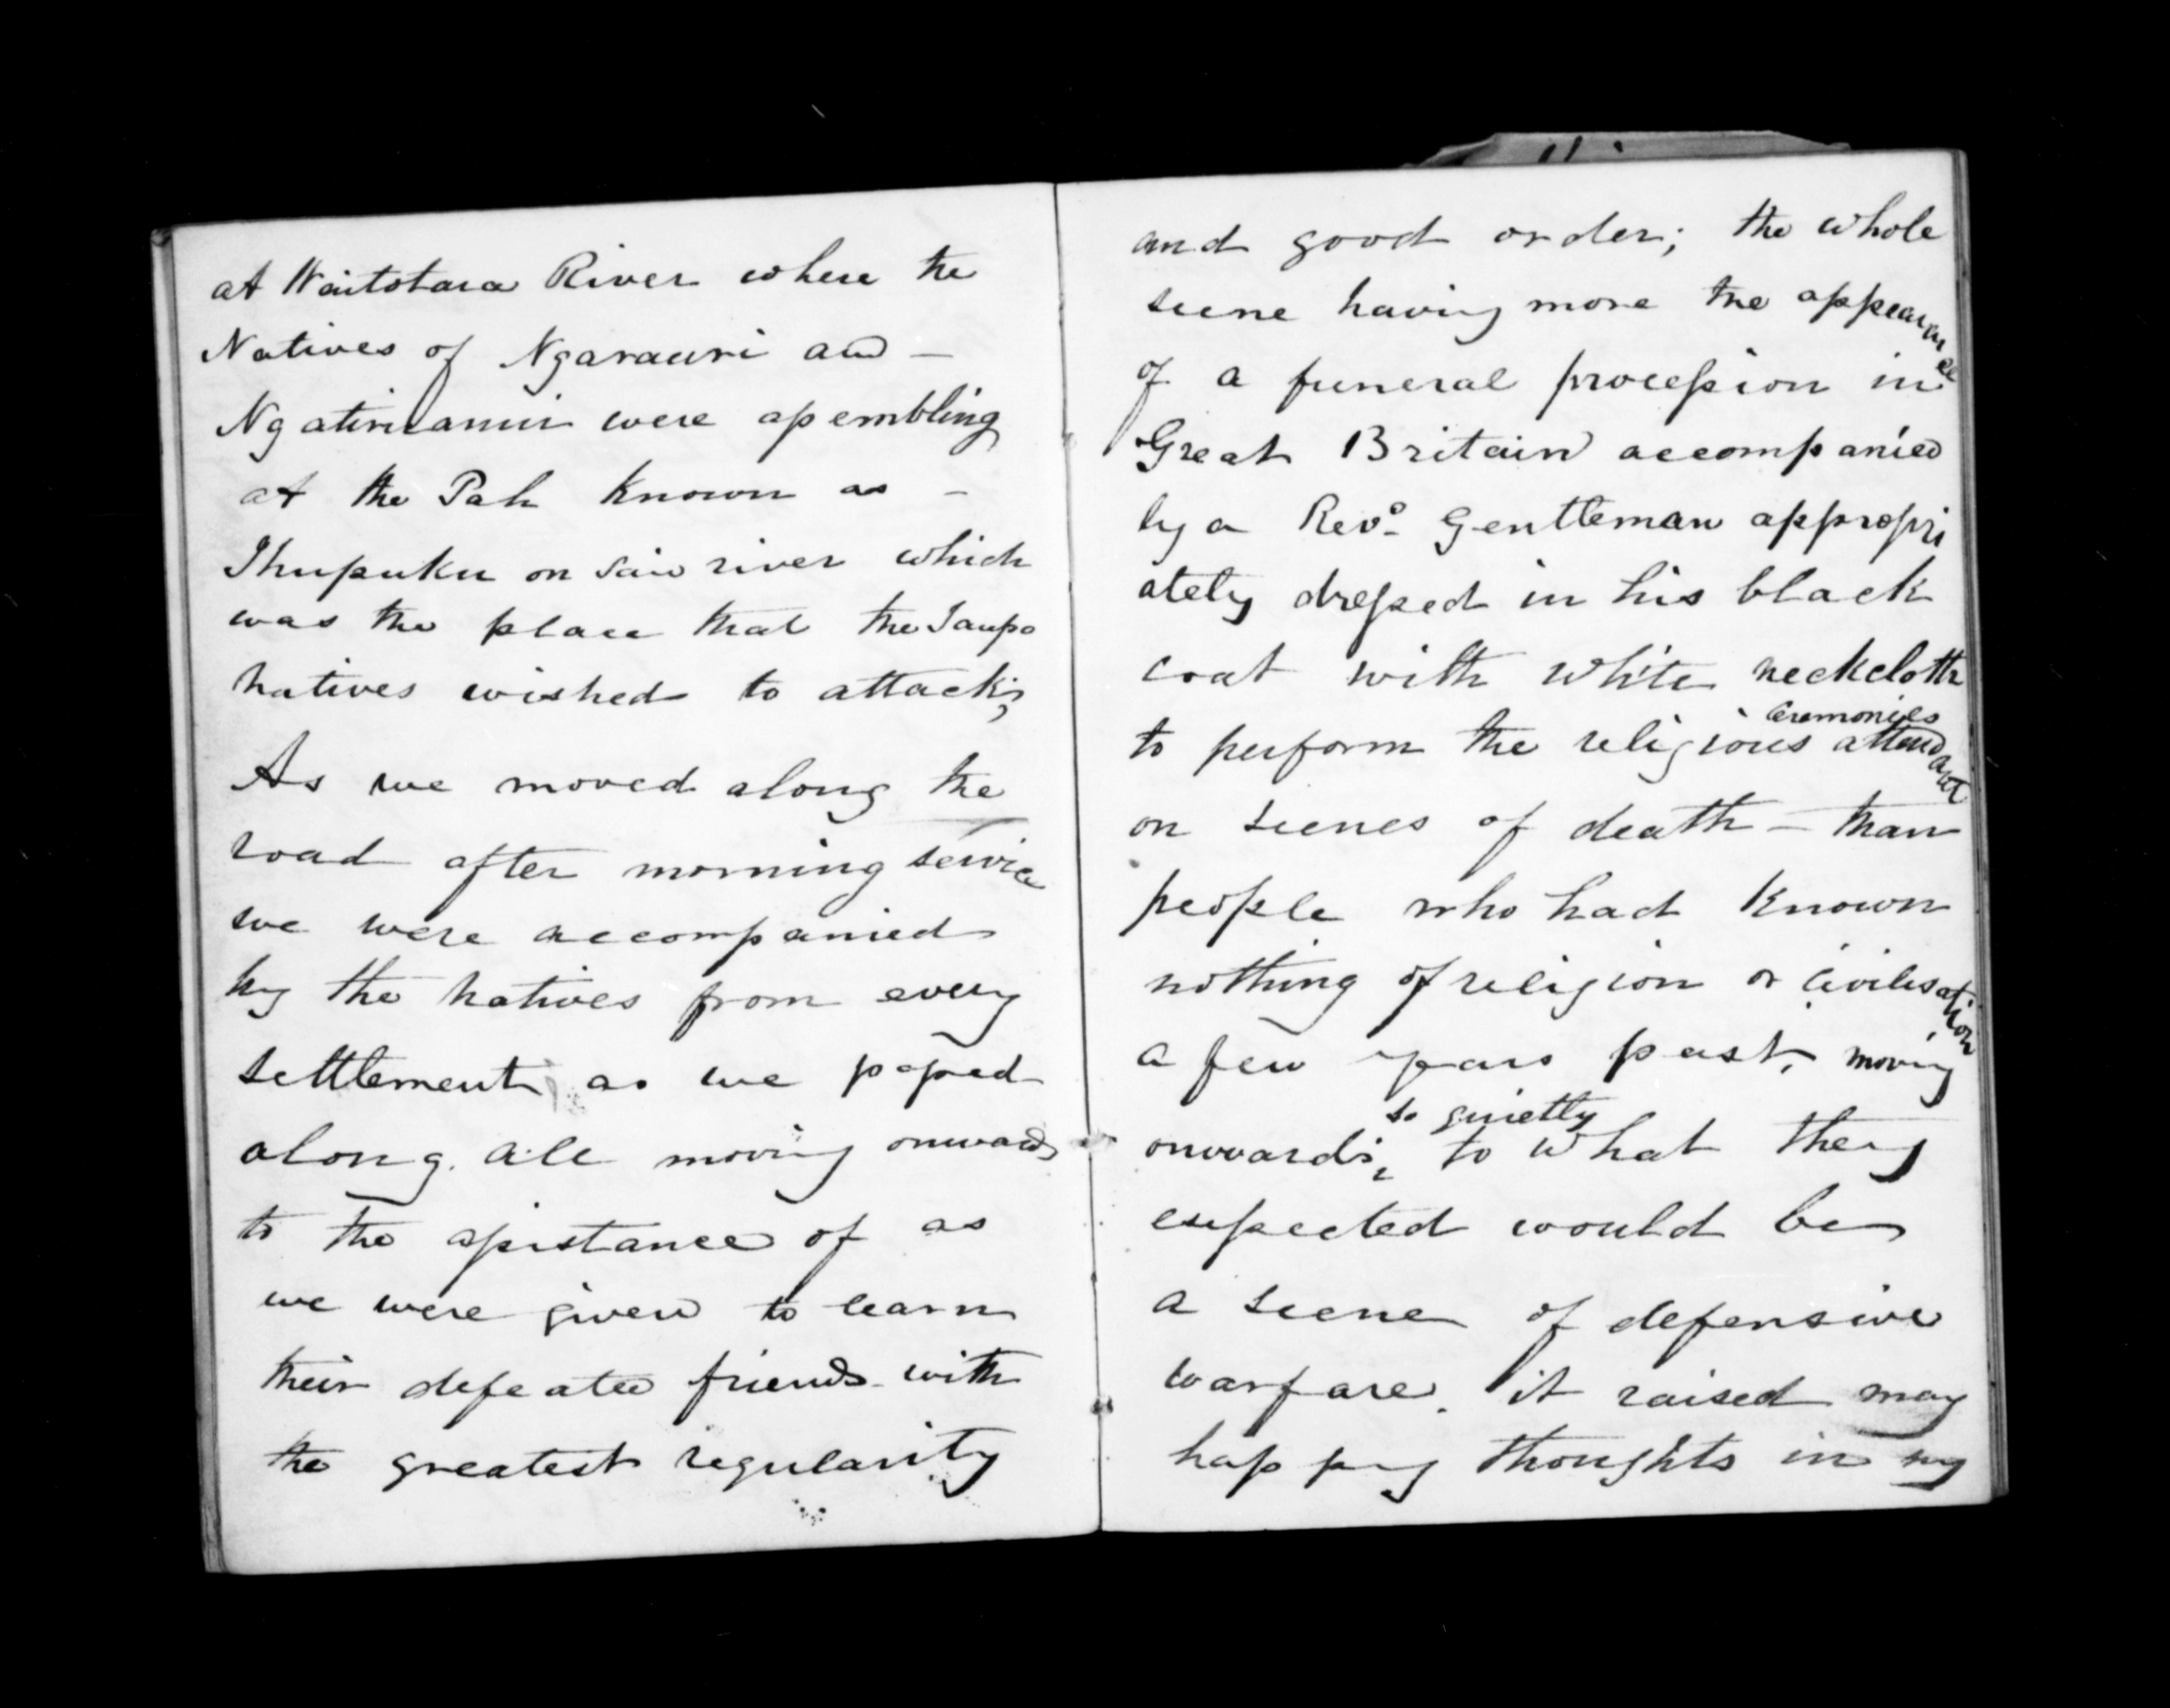 at Waitotara River where the
Natives of Ngarauri and –
Ngatiruanui were assembling
at the Pah known as –
Ihupuku on said river which
was the place that the Taupo
natives wished to attack;
As we moved along the
road after morning service
we were accompanied
by the natives from every
settlement as we passed
along. all moving onwards
to the assistance of as
we were given to learn
their defeated friends with
the greatest regularity
and good order; the whole
scene having more the appearance
of a funeral procession in
Great Britain accompanied
by a Revd. Gentleman appropri
ately dressed in his black
coat with white neckcloth
ceremonies
to perform the religious attendant
on scenes of death – than
people who had known
nothing of religion or civilisation
a few years past, moving
so quietly
onwards, to what they
expected would be
a scene of defensive
warfare. it raised many
happy thoughts in my